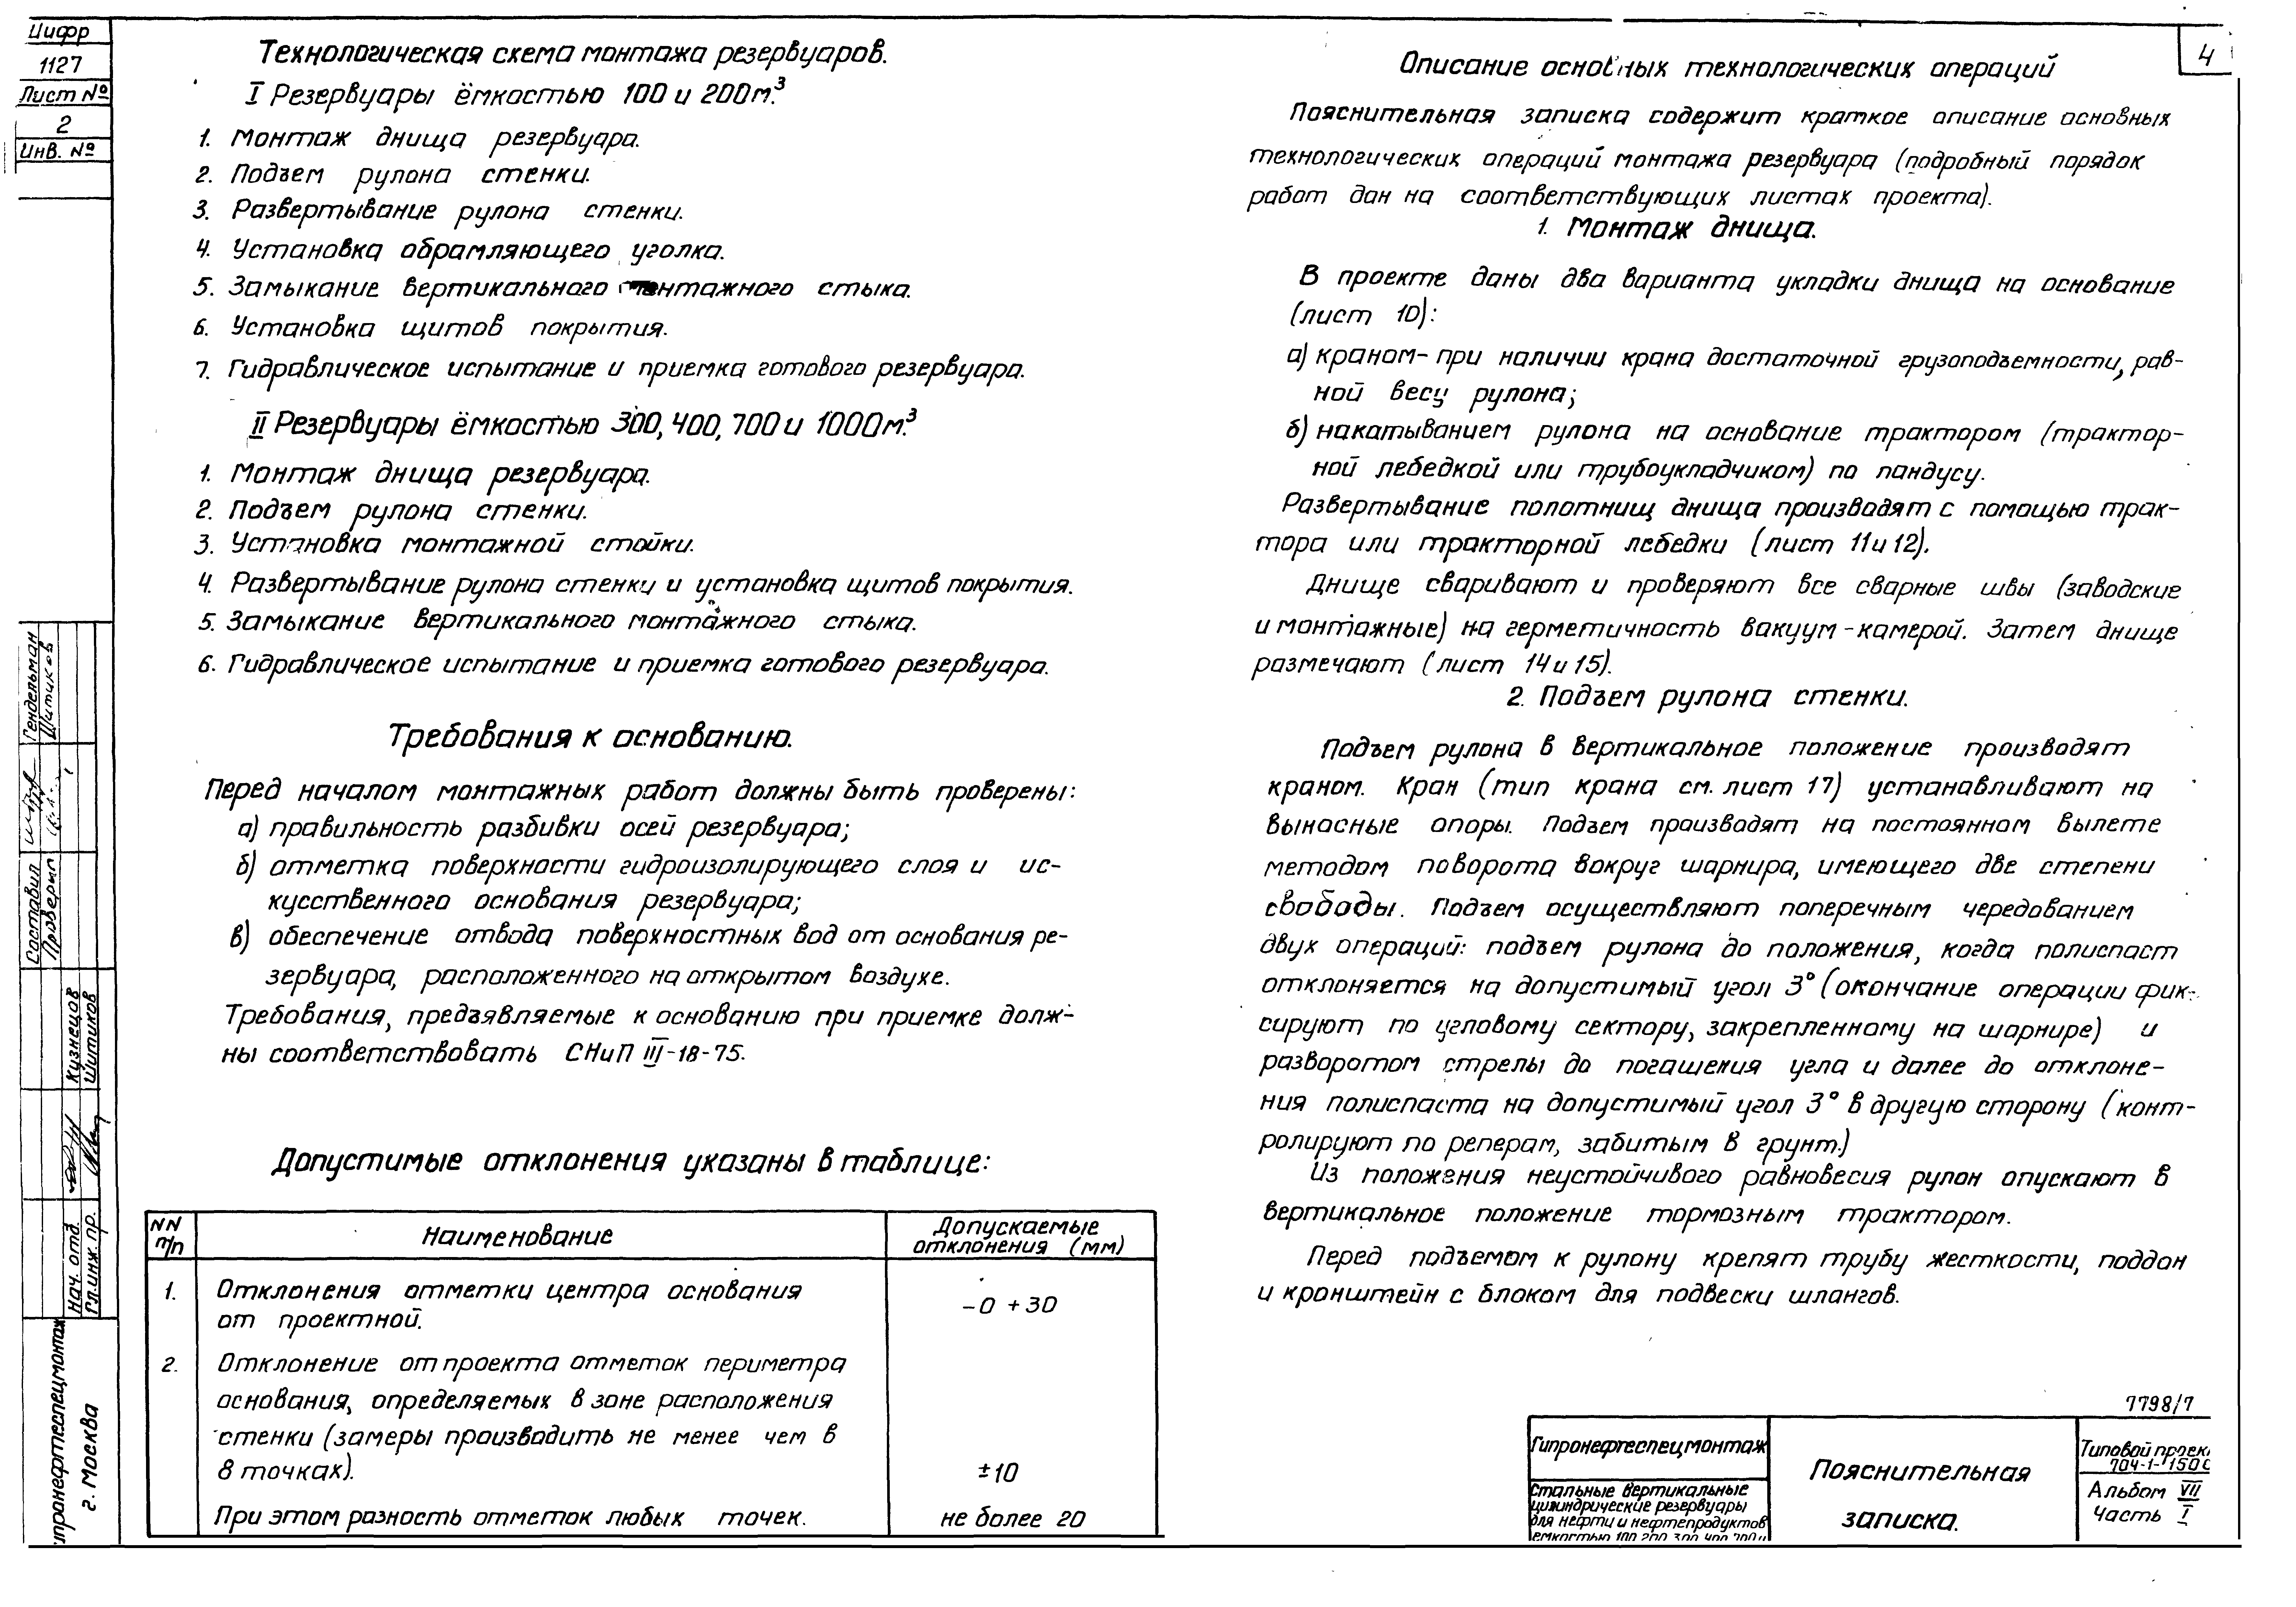 Шифр
1127
Лист №
2
Инв. №
Технологическая схема монтажа резервуаров.
I Резервуары ёмкостью 100 и 200 м.³
1. Монтаж днища резервуара.
2. Подъем рулона стенки.
3. Развертывание рулона стенки.
4. Установка обрамляющего уголка.
5. Замыкание вертикального монтажного стыка.
6. Установка щитов покрытия.
7. Гидравлическое испытание и приемка готового резервуара.
II Резервуары ёмкостью 300, 400, 700 и 1000 м.³
1. Монтаж днища резервуара.
2. Подъем рулона стенки.
3. Установка монтажной стойки.
4. Развертывание рулона стенки и установка щитов покрытия.
5. Замыкание вертикального монтажного стыка.
6. Гидравлическое испытание и приемка готового резервуара.
Требования к основанию.
Перед началом монтажных работ должны быть проверены:
а) правильность разбивки осей резервуара;
б) отметка поверхности гидроизолирующего слоя и ис-
кусственного основания резервуара;
в) обеспечение отвода поверхностных вод от основания ре-
зервуара, расположенного на открытом воздухе.
Требования, предъявляемые к основанию при приемке долж-
ны соответствовать СНиП III-18-75.
Допустимые отклонения указаны в таблице:
NN п/п
Наименование
Допускаемые отклонения (мм)
1. Отклонения отметки центра основания
от проектной.
-0 +30
2. Отклонение от проекта отметок периметра
основания, определяемых в зоне расположения
стенки (замеры производить не менее чем в
8 точках).
±10
При этом разность отметок любых точек.
не более 20
4
Описание основных технологических операций
Пояснительная записка содержит краткое описание основных
технологических операций монтажа резервуара (подробный порядок
работ дан на соответствующих листах проекта).
1. Монтаж днища.
В проекте даны два варианта укладки днища на основание
(лист 10):
а) краном - при наличии крана достаточной грузоподъемности, рав-
ной весу рулона;
б) накатыванием рулона на основание трактором (трактор-
ной лебедкой или трубоукладчиком) по пандусу.
Развертывание полотнищ днища производят с помощью трак-
тора или тракторной лебедки (лист 11 и 12).
Днище сваривают и проверяют все сварные швы (заводские
и монтажные) на герметичность вакуум-камерой. Затем днище
размечают (лист 14 и 15).
2. Подъем рулона стенки.
Подъем рулона в вертикальное положение производят
краном. Кран (тип крана см. лист 17) устанавливают на
выносные опоры. Подъем производят на постоянном вылете
методом поворота вокруг шарнира, имеющего две степени
свободы. Подъем осуществляют поперечным чередованием
двух операций: подъем рулона до положения, когда полиспаст
отклоняется на допустимый угол 3° (окончание операции фик-
сируют по угловому сектору, закрепленному на шарнире) и
разворотом стрелы до погашения угла и далее до отклоне-
ния полиспаста на допустимый угол 3° в другую сторону (конт-
ролируют по реперам, забитым в грунт.)
Из положения неустойчивого равновесия рулон опускают в
вертикальное положение тормозным трактором.
Перед подъемом к рулону крепят трубу жесткости, поддон
и кронштейн с блоком для подвески шлангов.
7798/7
Гипронефтеспецмонтаж
Стальные вертикальные
цилиндрические резервуары
для нефти и нефтепродуктов
емкостью 100 200 300 400 700 и
Пояснительная
записка.
Типовой проек
704-1-150С
Альбом VII
Часть I
Составил Гендельман
Проверил Шитиков
Нач. отд. Кузнецов
Гл. инж. пр. Шитиков
ипронефтеспецмонтаж
г. Москва